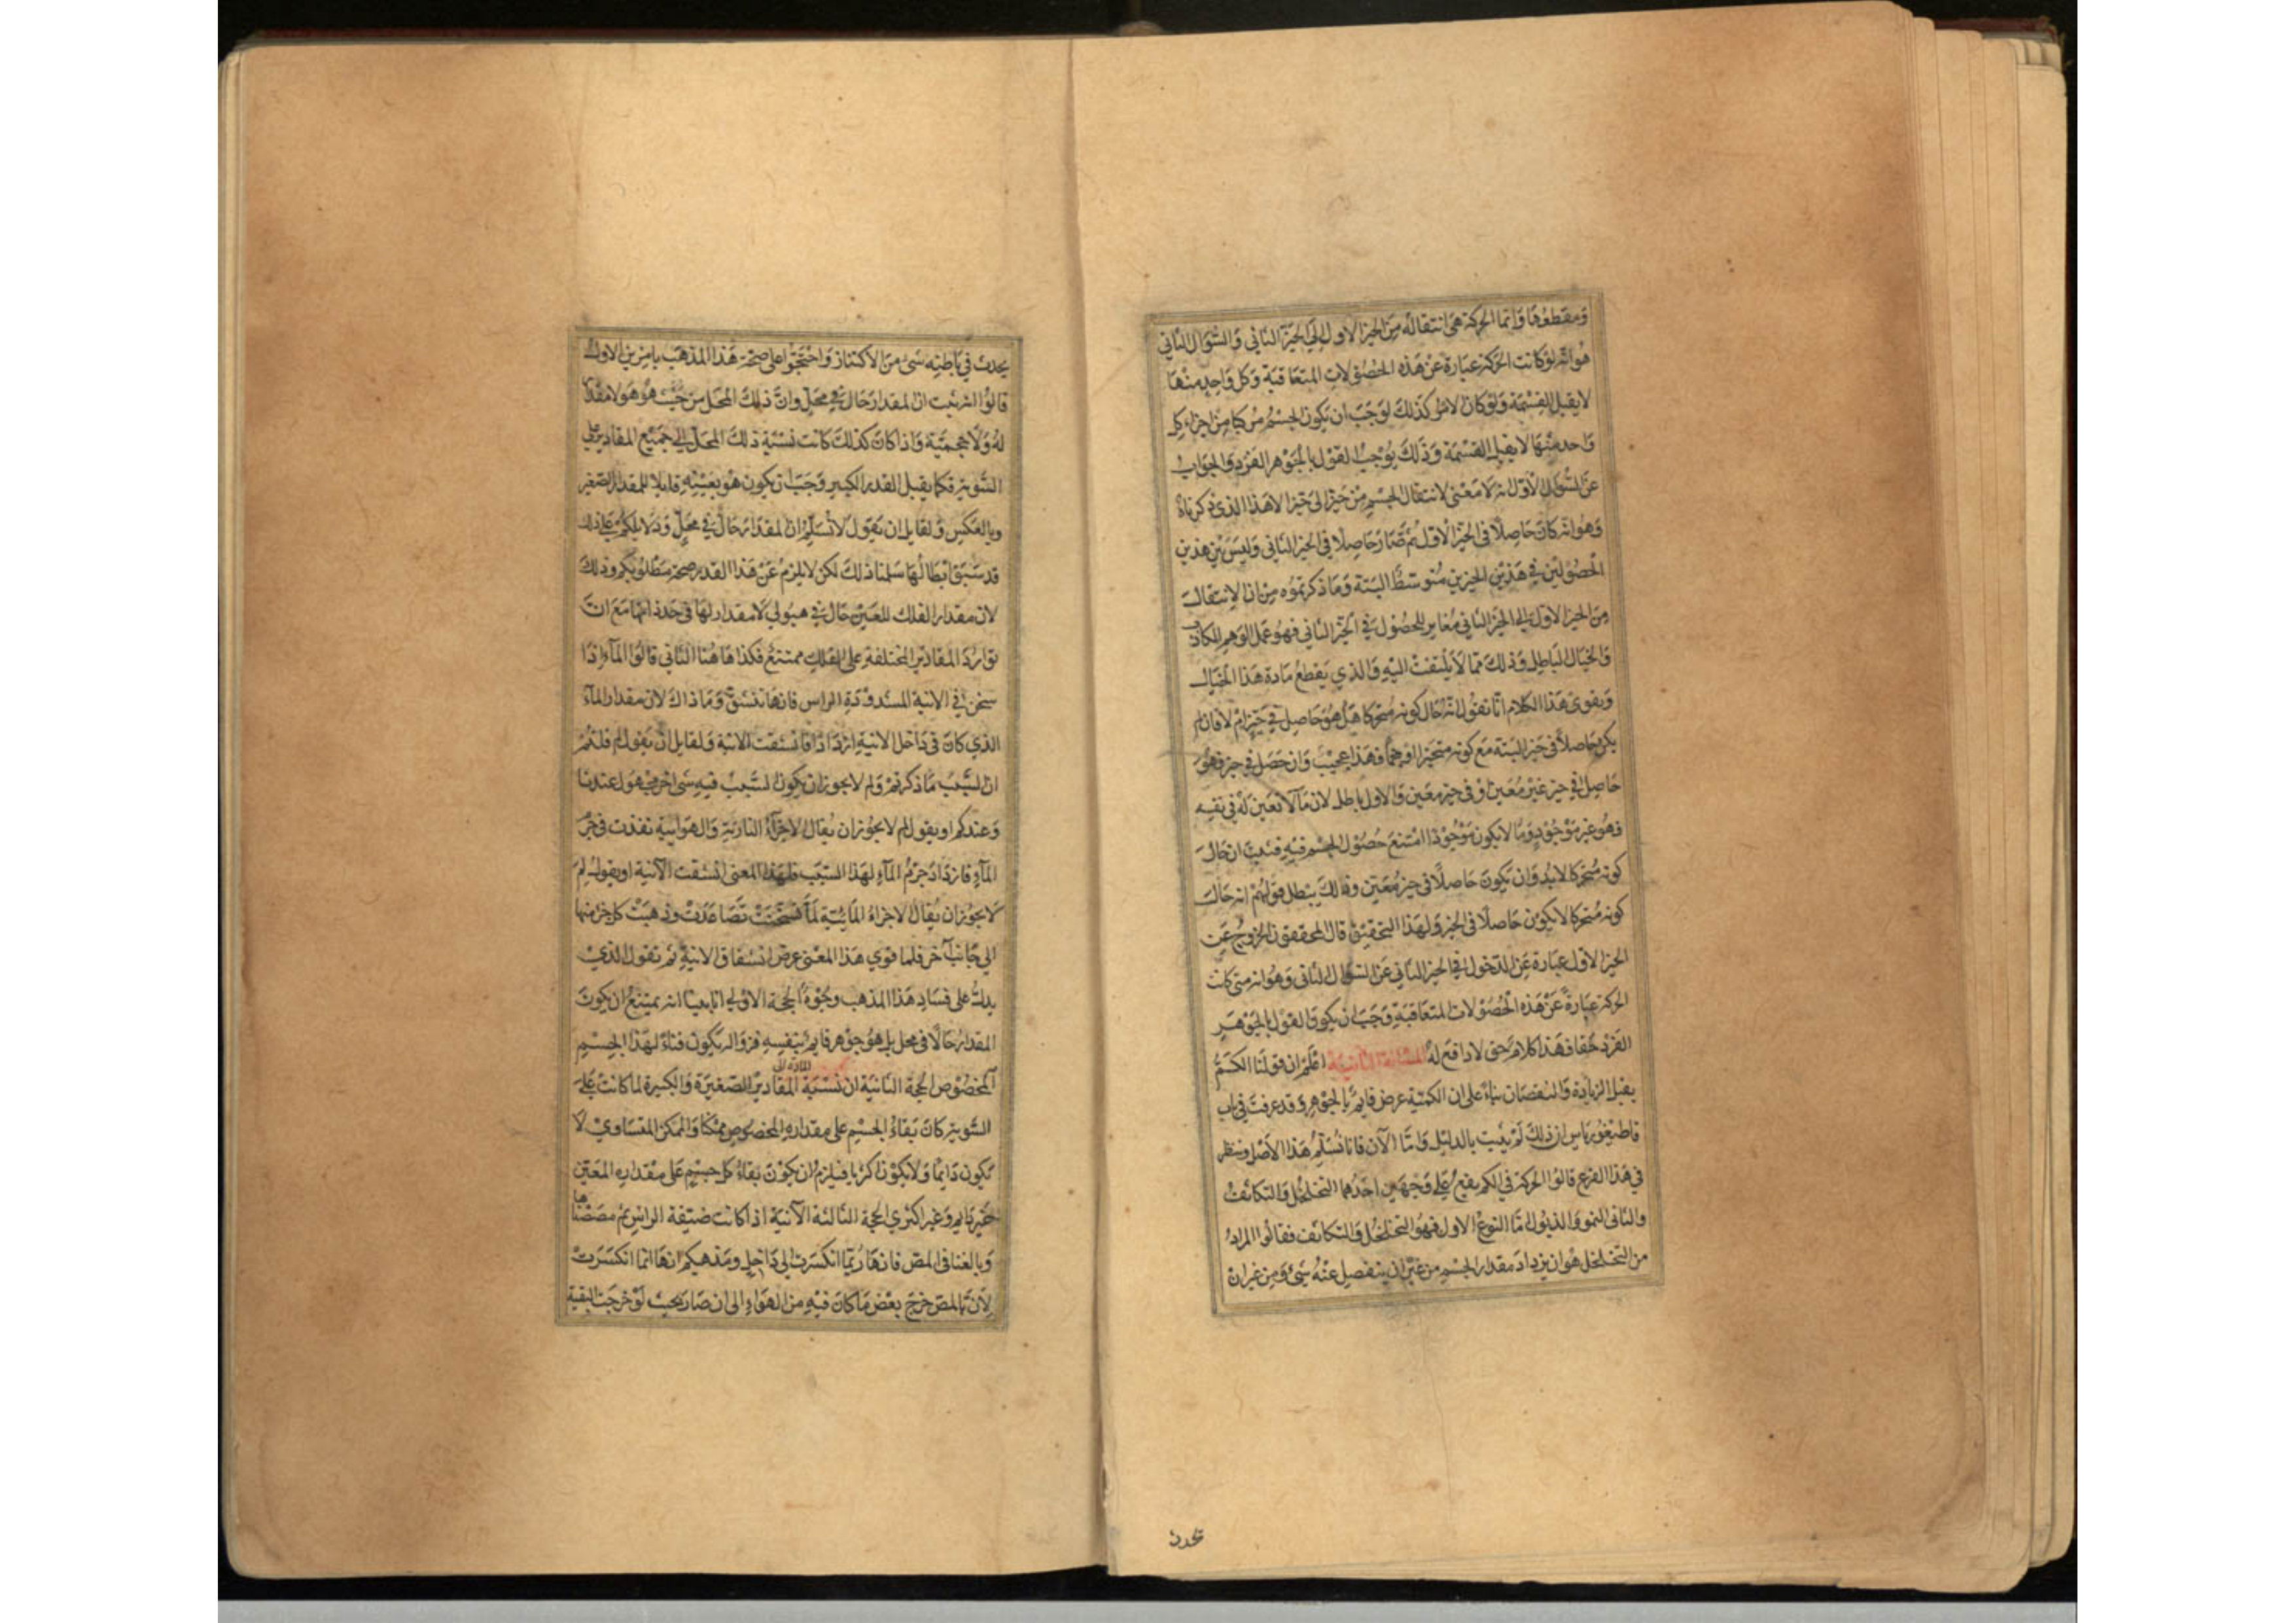 ومقطوعا وانما الحركة هى انتقاله من الحيز الاول الى الحيز الثانى والسؤال الثانى
هو انه لو كانت الحركة عبارة عن هذه الحصولات المتعاقبة وكل واحد منها
لا يقبل القسمة ولو كان الامر كذلك لوجب ان يكون الجسم مركبا من اجزاء كل
واحد منها لا يقبل القسمة وذلك يوجب القول بالجوهر الفرد والجواب
عن السؤال الاول انه لا معنى لانتقال الجسم من حيز الى حيز الا هذا الذى ذكرناه
وهو انه كان حاصلا فى الحيز الاول ثم صار حاصلا فى الحيز الثانى وليس بين هذين
الحصولين فى هذين الحيزين متوسط البتة وما ذكرتموه من ان الانتقال
من الحيز الاول الى الحيز الثانى مغاير للحصول فى الحيز الثانى فهو عمل الوهم الكاذب
والخيال الباطل وذلك مما لا يلتفت اليه والذي يقطع مادة هذا الخيال
ويقوى هذا الكلام انا نقول انه حال كونه متحركا هل هو حاصل فى حيز ام لا فان لم
يكن حاصلا فى حيز البتة مع كونه متحيزا فهذا عجيب وان حصل فى حيز فهو
حاصل فى حيز غير معين او فى حيز معين والاول باطل لان ما لا تعين له فى نفسه
فهو غير موجود وما لا يكون موجودا امتنع حصول الجسم فيه فثبت ان حال
كونه متحركا لابد وان يكون حاصلا فى حيز معين وذلك يبطل قولهم انه حال
كونه متحركا لا يكون حاصلا فى الحيز ولهذا التحقيق قال المحققون الخروج عن
الحيز الاول عبارة عن الدخول فى الحيز الثانى عن السؤال الثانى وهو انه متى كانت
الحركة عبارة عن هذه الحصولات المتعاقبة وجب ان يكون القول بالجوهر
الفرد حقا فهذا كلام حق لا دافع له المسئلة الثانية اعلم ان قولنا الكم
يقبل الزيادة والنقصان بناء على ان الكمية عرض قايم بالجوهر وقد عرفت فى باب
قاطيغورياس ان ذلك لم يثبت بالدليل واما الآن فانا نسلم هذا الاصل وننظر
فى هذا الفرع قالوا الحركة فى الكم يقع على وجهين احدهما التخلخل والتكاثف
والثانى النمو والذبول اما النوع الاول فهو التخلخل والتكاثف فقالوا المراد
من التخلخل هو ان يزداد مقدار الجسم من غير ان ينفصل عنه شئ ومن غير ان
يحدث في باطنه شئ من الاكتناز واحتجوا على صحة هذا المذهب بامرين الاول
قالوا انه ثبت ان المقدار حال في محل وان ذلك المحل من حيث هو هو لا مقدار
له ولا حجمية واذا كان كذلك كانت نسبة ذلك المحل الى جميع المقادير على
السوية فكما يقبل القدر الكبير وجب ان يكون هو بعينه قابلا للمقدار الصغير
وبالعكس ولقايل ان يقول لا نسلم ان المقدار حال في محل ودلايلكم على ذلك
قد سبق ابطالها سلمنا ذلك لكن لا يلزم عن هذا القدر صحة مطلوبكم وذلك
لان مقدار الفلك المعين حال في هيولي لا مقدار لها فى حد ذاتها مع ان
توارد المقادير المختلفة على الفلك ممتنع فكذا هاهنا الثاني قالوا المآء اذا
سخن في الانية المسدودة الراس فانها تنشق وما ذاك الا لان مقدار المآء
الذي كان فى داخل الانية ازداد فانشقت الانية ولقايل ان يقول لم قلتم
ان السبب ما ذكرتم ولم لا يجوز ان يكون السبب فيه شى اخر مجهول عندنا
وعندكم او يقول لم لا يجوز ان يقال الاجزآء النارية والهوايية نفذت فى جرم
المآء فازداد جرم المآء لهذا السبب فلهذا المعنى انشقت الآنية او يقول لم
لا يجوز ان يقال الاجزاء المائية لما تسخنت تصاعدت وذهبت كل جزء منها
الى جانب آخر فلما قوي هذا المعنى عرض انشقاق الانية ثم نقول الذي
يدل على فساد هذا المذهب وجوه الحجة الاولى انا بينا انه يمتنع ان يكون
المقدار حالا فى محل بل هو جوهر قايم بنفسه فزواله يكون فناء لهذا الجسم
المخصوص الحجة الثانية ان نسبة المادة الى المقادير الصغيرة والكبيرة لما كانت على
السوية كان بقاء الجسم على مقداره المخصوص ممكنا والممكن المتساوي لا
يكون دايما ولا يكون اكثريا فيلزم ان يكون بقاء كل جسم على مقداره المعين
غير دايم وغير اكثري الحجة الثالثة الآنية اذا كانت ضيقة الراس ثم مصصناها
وبالغنا فى المص فانها ربما انكسرت الى داخل ومذهبكم انها انما انكسرت
لان بالمص خرج بعض ما كان فيه من الهواء الى ان صار بحيث لو خرجت البقية
يحدث